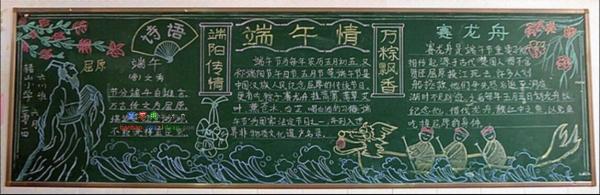 诗语
屈原
端午
唐文秀
节分端午自谁言
万古传文为屈原
端阳传情
端午情
端午节为每年农历五月初五,又
称端阳节午日节五月节等。端午节是
中国汉族人民纪念屈原的传统节日,
更有吃粽子,赛龙舟,挂菖蒲,蒿草,艾
叶,薰苍术,白芷,喝雄黄酒的习俗。端
午节为国家法定节日之一,并列入世
界非物质文化遗产名录。
万粽飘香
赛龙舟
赛龙舟是端午节重要习俗
相传起源于古代楚国人因舍不得
贤臣屈原投江死去,许多人划
船追赶
他们争先恐后追至洞庭
湖时不见踪迹,之后每年五月五日划龙舟以
纪念他。借划龙舟驱散江中之鱼,以免鱼
吃掉屈原的身体。